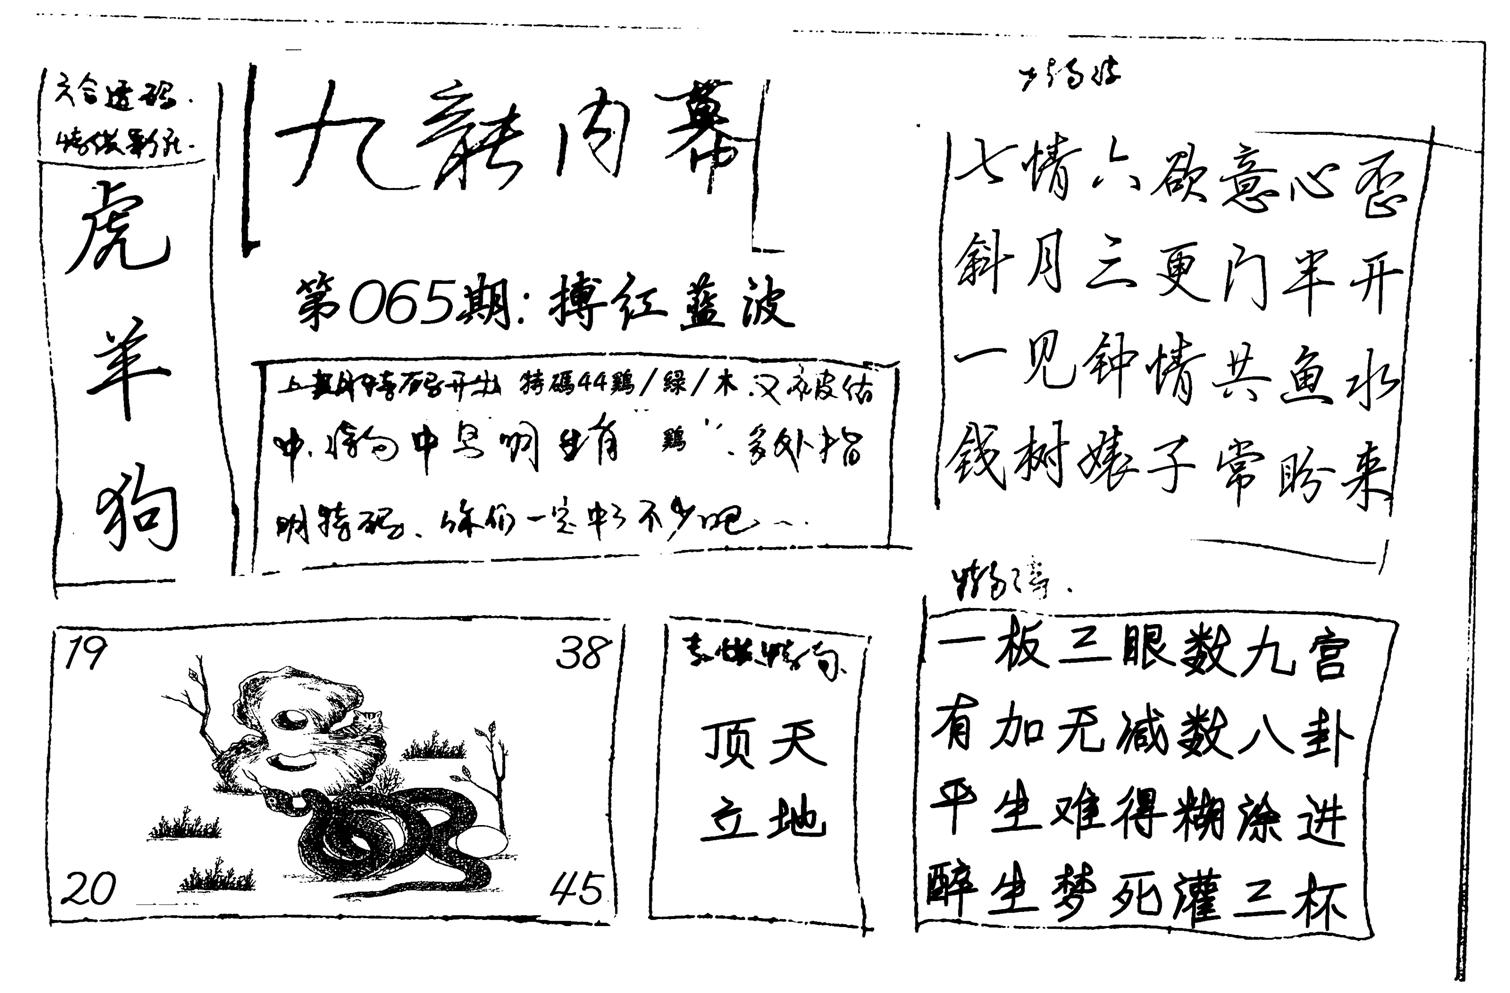 六合透码.
虎
羊
狗
九龍内幕
第065期:搏红蓝波
上期特码开出 特碼44鷄/綠/木.又被估
中.特句中 明生肖"鷄".多外指
明特码、你们一定中了不少吧...
七情六欲意心歪
斜月三更门半开
一见钟情共鱼水
钱树婊子常盼来
19
38
20
45
顶天
立地
一板三眼数九宫
有加无减数八卦
平生难得糊涂进
醉生梦死灌三杯